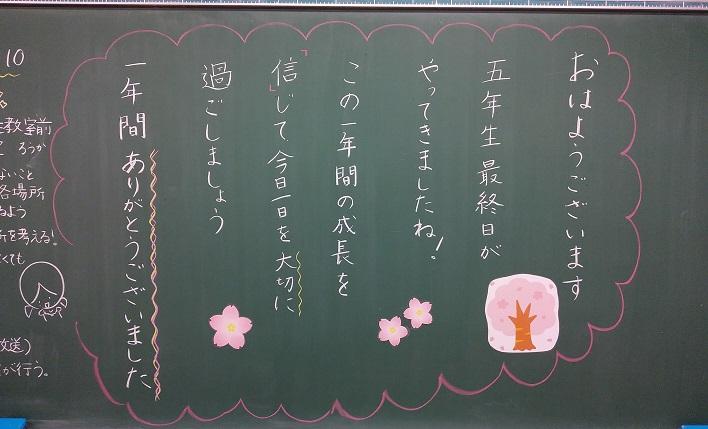 おはようございます
五年生最終日が
やってきましたね!
この一年間の成長を
「信」じて今日一日を大切に
過ごしましょう
一年間ありがとうございました
10
教室前
ろうか
ないこと
各場所
るよう
を考える!
くても
放送)
が行う。